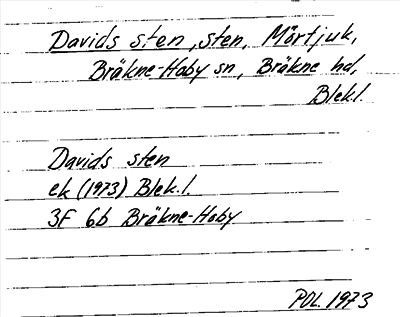 Davids sten, sten, Mörtjuk,
Bräkne-Hoby sn, Bräkne hd,
Blek.l.
Davids sten
ek (1973) Blek.l.
3F 6b Bräkne-Hoby
POL. 1973